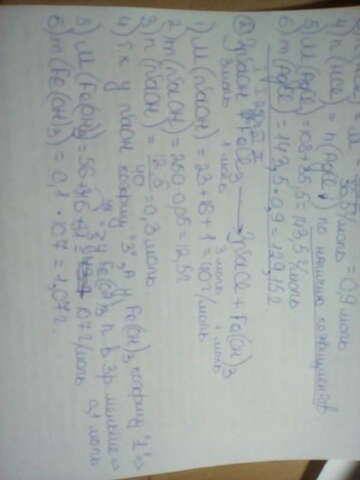 4) n(HCl) = n(AgCl) по наличию коэффициентов
5) M(AgCl) = 108+35,5=143,5 г/моль
6) m(AgCl) = 143,5·0,9=129,15 г
3NaOH + FeCl3 → 3NaCl + Fe(OH)3
3 моль 1 моль 3 моль 1 моль
1) M(NaOH) = 23+16+1=40 г/моль
2) m(NaOH) = 250·0,05=12,5 г
3) n(NaOH) = 12,5/40 = 0,3 моль
4) Т.к у NaOH коэффиц "3", а у Fe(OH)3 коэффиц "1" =>
=> у Fe(OH)3 n в 3р меньше =>
0,1 моль
5) M(Fe(OH)3) = 107 г/моль
6) m(Fe(OH)3) = 0,1·107=1,07 г.